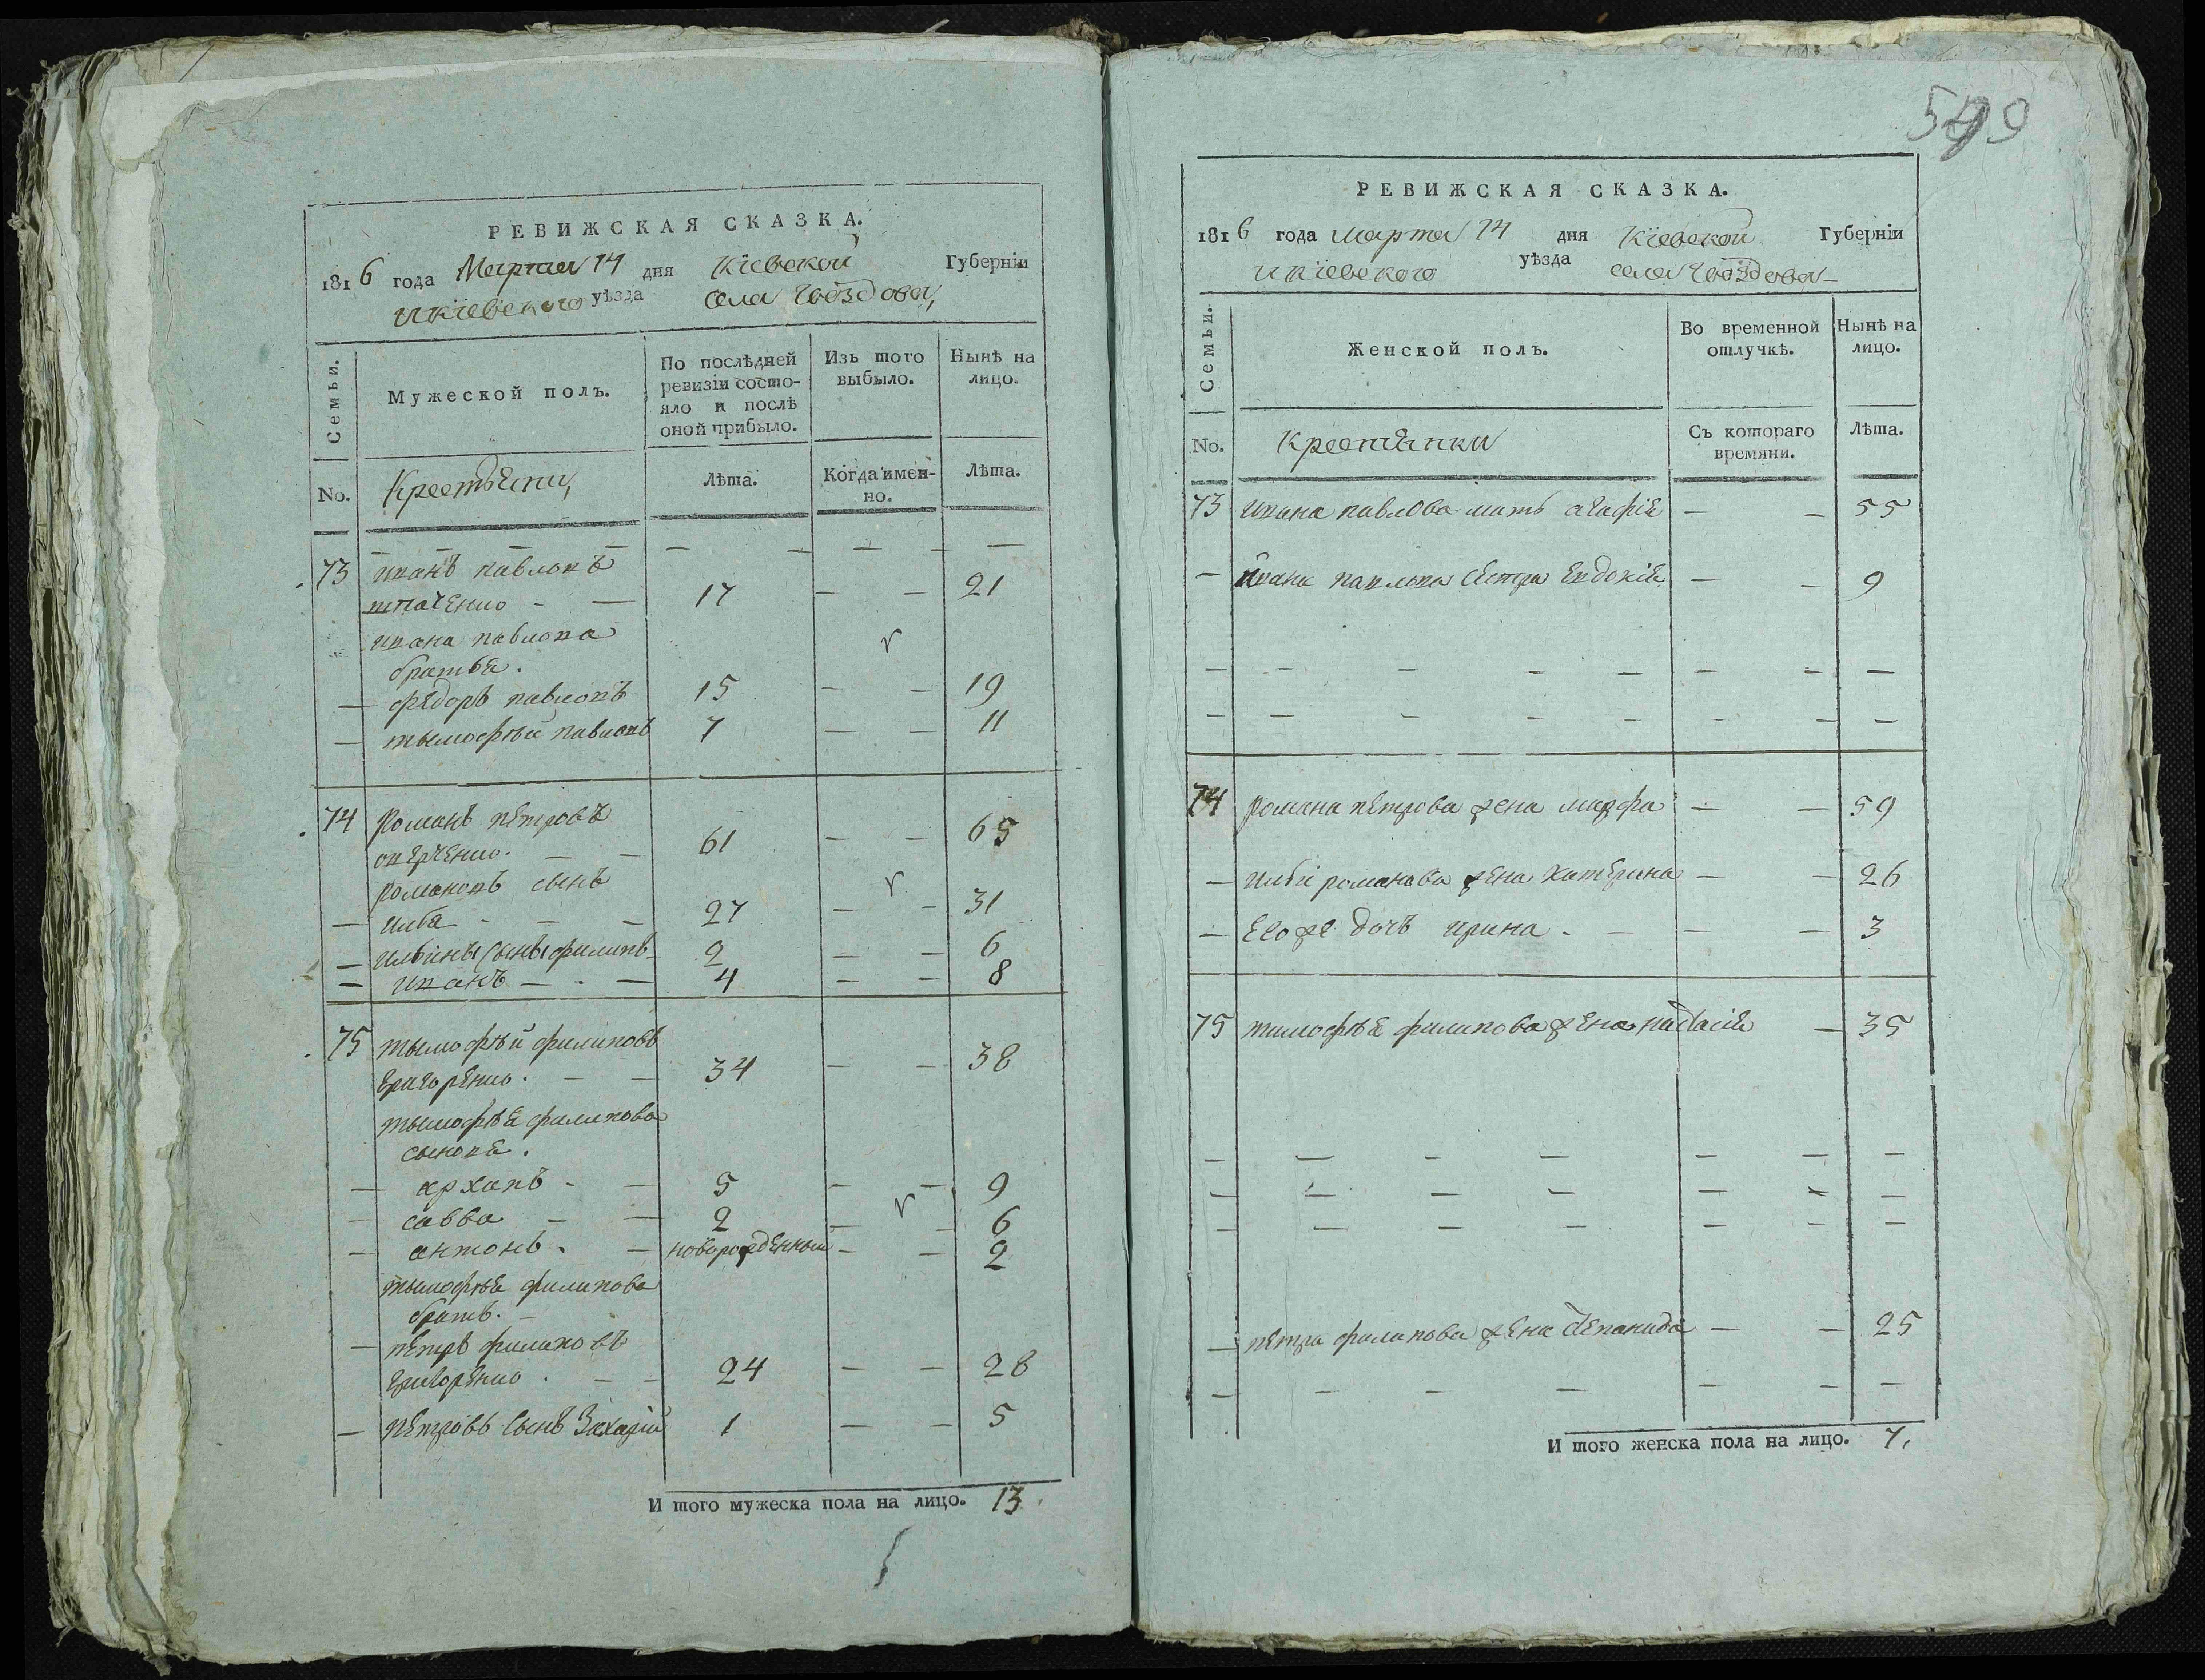 РЕВИЖСКАЯ СКАЗКА.
1816 года Марта 14 дня Кіевской Губерніи
и кіевского уѣзда села Гвоздова
Семьи. Мужеской полъ. По послѣдней ревизіи состояло и послѣ оной прибыло. Изъ того выбыло. Нынѣ на лицо.
No. Крестьяни Лѣта. Когда имен-но. Лѣта.
73 иванъ павловъ
17 — — 21
ивана павлова
братья.
— федоръ павловъ 15 — — 19
— тымофѣй павловъ 7 — — 11
74 романъ петровъ
61 — — 65
романовъ сынъ
— илья - — — 27 — — 31
— ильины сыны филипъ 2 — — 6
— иванъ — - — 4 — — 8
75 тымофѣй филиповъ
григоренко. — — 34 — — 38
тымофѣя филипова
сыновя.
— архипъ - — 5 — — 9
— савва — — 2 — — 6
— антонъ. — новорожденный — — 2
тымофѣя филипова
братъ. —
— петръ филиповъ
григоренко. — — 24 — — 28
— петровъ сынъ Захарій 1 — — 5
И того мужеска пола на лицо. 13.
599
РЕВИЖСКАЯ СКАЗКА.
1816 года марта 14 дня Кіевской Губерніи
и кіевского уѣзда села Гвоздова
Семьи. Женской полъ. Во временной отлучкѣ. Нынѣ на лицо.
No. Крестянки Съ котораго времяни. Лѣта.
73 ивана павлова мать агафія — — 55
— ивана павлова сестра евдокія — — 9
74 романа петрова жена марфа — — 59
— ильи романова жена катерина — — 26
— его же дочъ ирина - — — — 3
75 тимофѣя филипова жена настасія — 35
— петра филипова жена степанида — — 25
И того женска пола на лицо. 7.